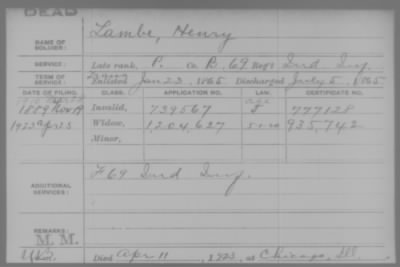 DEAD
NAME OF SOLDIER: Lambe, Henry
SERVICE: Late rank, P. Co. B, 69 Reg't Ind Inf.
TERM OF SERVICE: Enlisted Jan 23, 1865. Discharged July 5, 1865
DATE OF FILING. CLASS. APPLICATION NO. LAW. CERTIFICATE NO.
age
1889 Nov 19 Invalid, 739567 J 777128
1923 apr 25 Widow, 1,204,627 935,742
Minor,
ADDITIONAL SERVICES: F 69 Ind Inf.
REMARKS:
M. M.
Died Apr 11, 1923, at Chicago, Ill.